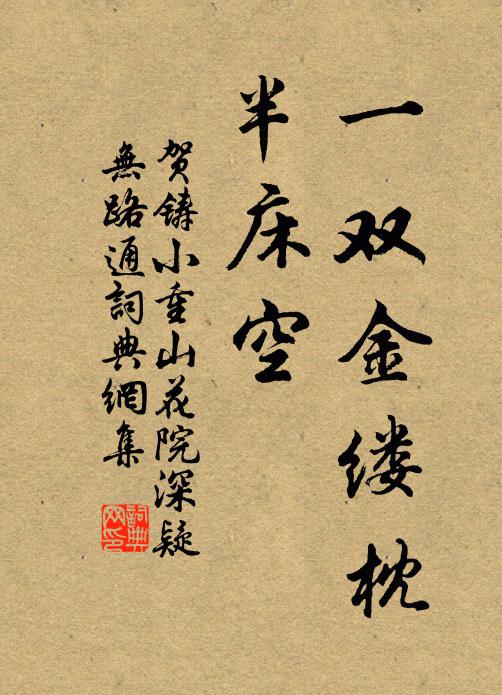 一双金缕枕
半床空
贺铸小重山花院深疑
無路通詞典網集
詞典
网印